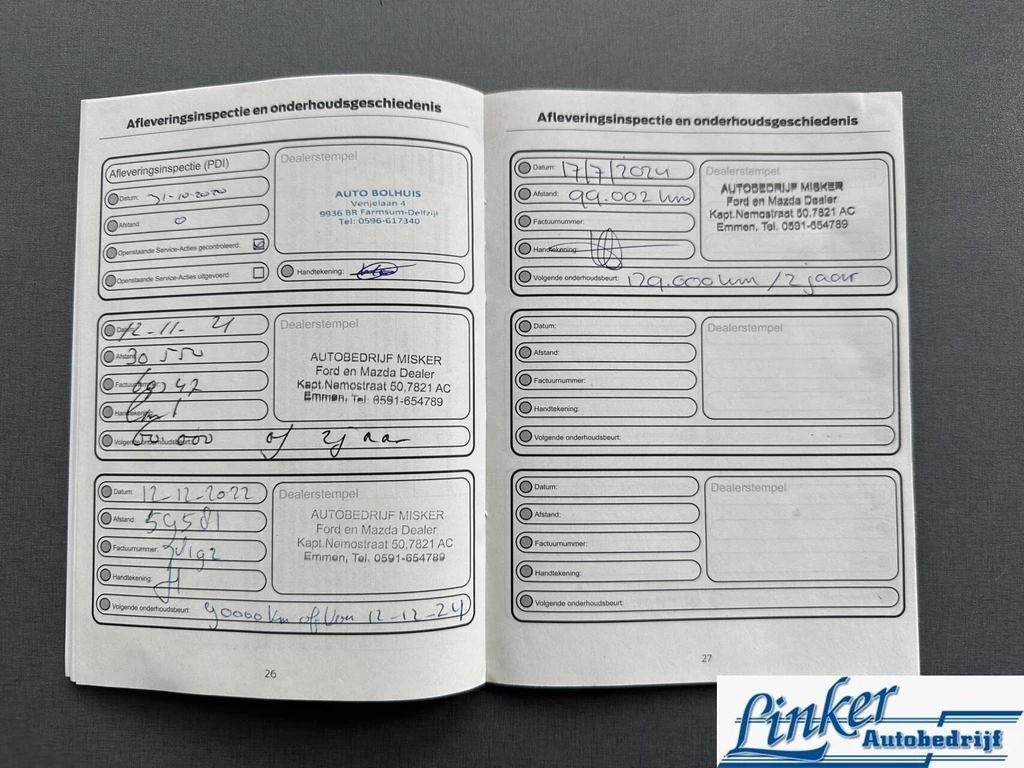 Afleveringsinspectie en onderhoudsgeschiedenis
Afleveringsinspectie (PDI)
Datum: 31-10-2020
Afstand: 0
Openstaande Service-Acties gecontroleerd:
Openstaande Service-Acties uitgevoerd:
Dealerstempel
AUTO BOLHUIS
Venjelaan 4
9936 BR Farmsum-Delfzijl
Tel: 0596-617340
Handtekening:
Datum: 12-11-21
Afstand: 30 550
Factuurnummer:
Handtekening:
Volgende onderhoudsbeurt: 60.000 of 2jaar
Dealerstempel
AUTOBEDRIJF MISKER
Ford en Mazda Dealer
Kapt.Nemostraat 50,7821 AC
Emmen, Tel. 0591-654789
Datum: 12-12-2022
Afstand: 59581
Factuurnummer:
Handtekening:
Volgende onderhoudsbeurt: 90000 km of 12-12-24
Dealerstempel
AUTOBEDRIJF MISKER
Ford en Mazda Dealer
Kapt.Nemostraat 50,7821 AC
Emmen, Tel. 0591-654789
26
Afleveringsinspectie en onderhoudsgeschiedenis
Datum: 17/7/2024
Afstand: 99.002 km
Factuurnummer:
Handtekening:
Volgende onderhoudsbeurt: 129.000 km / 2 jaar
Dealerstempel
AUTOBEDRIJF MISKER
Ford en Mazda Dealer
Kapt.Nemostraat 50,7821 AC
Emmen, Tel. 0591-654789
Datum:
Afstand:
Factuurnummer:
Handtekening:
Volgende onderhoudsbeurt:
Dealerstempel
Datum:
Afstand:
Factuurnummer:
Handtekening:
Volgende onderhoudsbeurt:
Dealerstempel
27
Linker
Autobedrijf